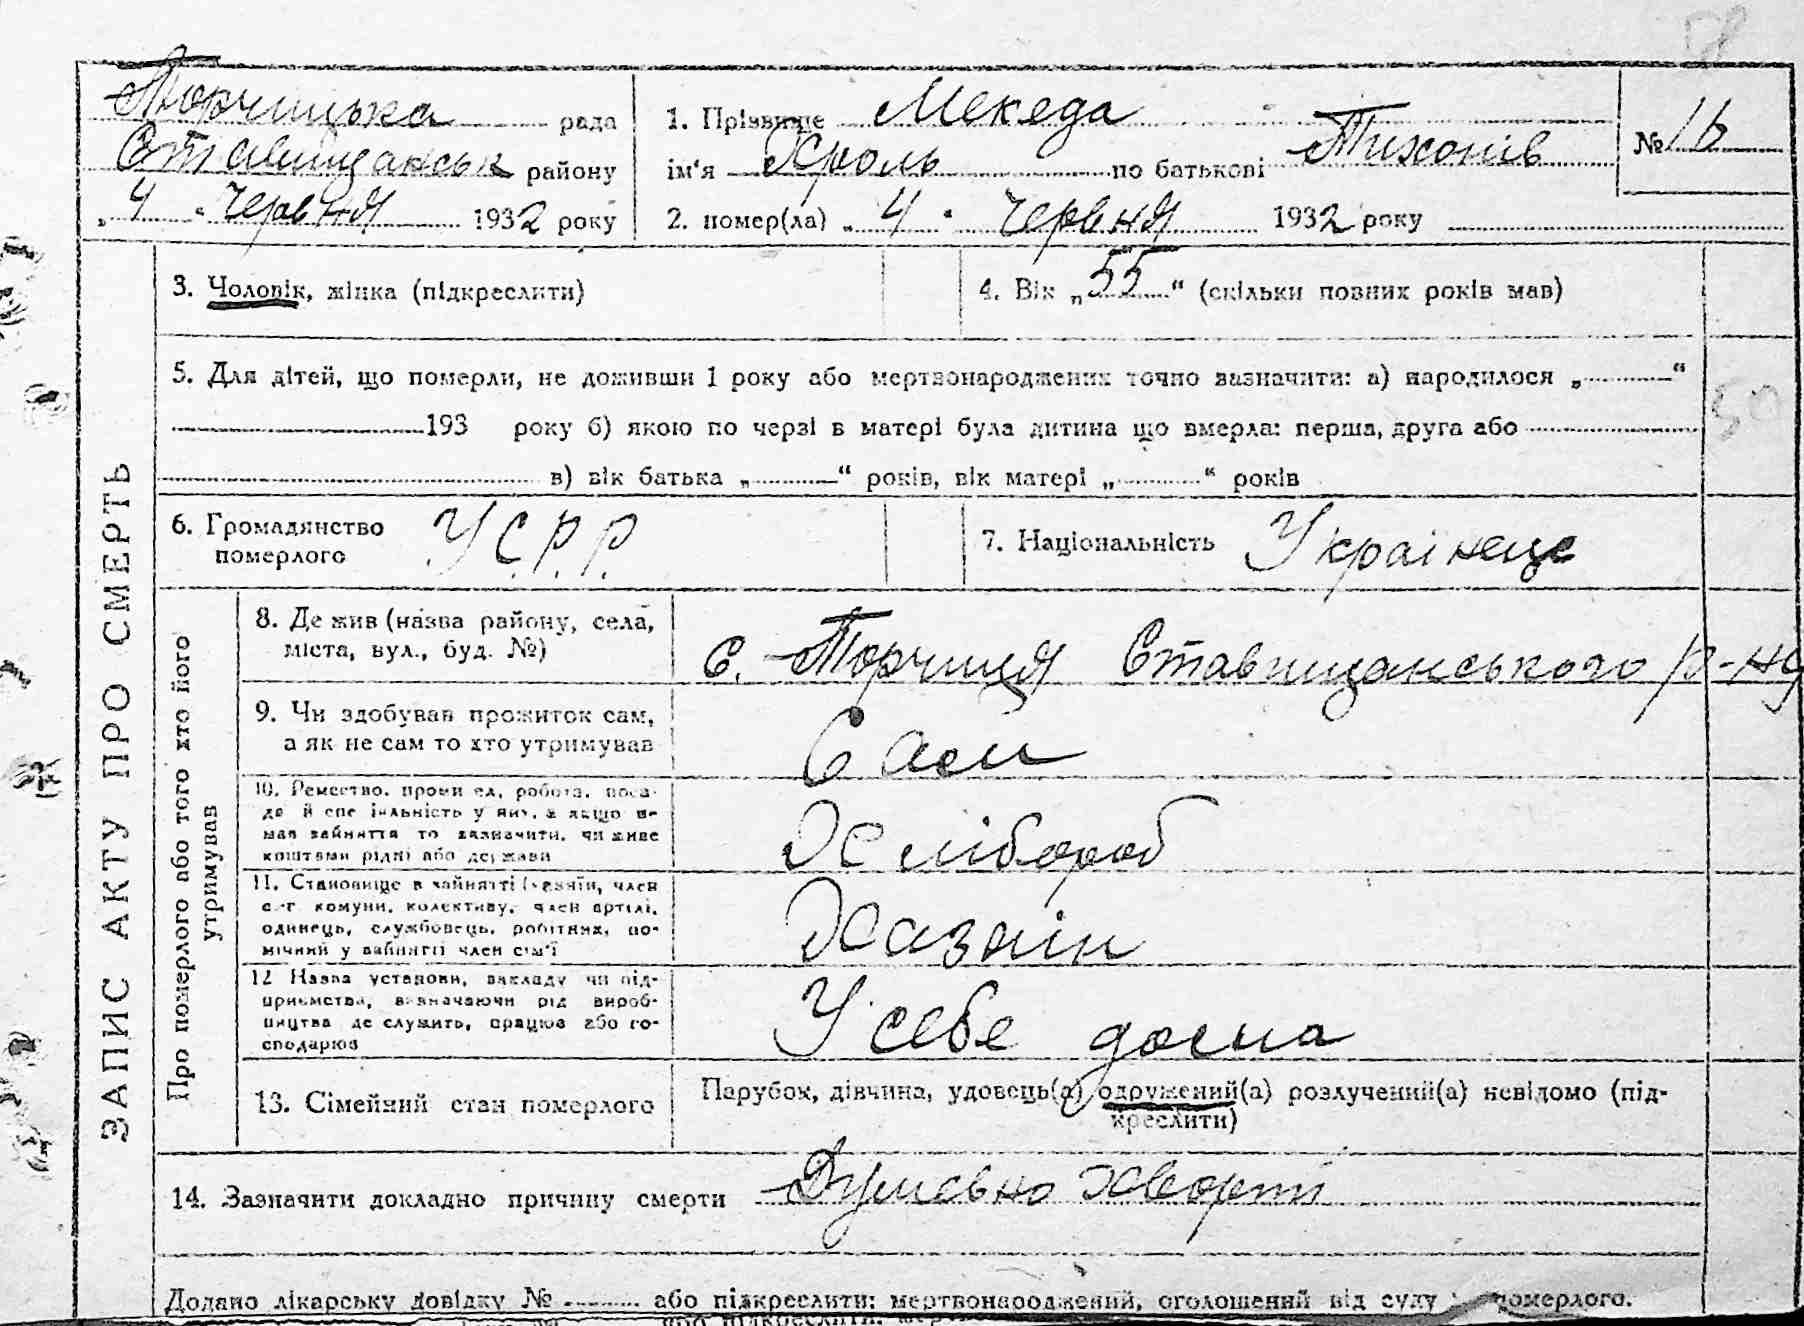 Торчицька рада
Ставищанськ району
„4“ Червня 1932 року
1. Прізвище Мекеда
ім'я Хроль по батькові Тихонів
№ 16
2. помер(ла) „4“ Червня 1932 року
3. Чоловік, жінка (підкреслити)
4. Вік „55“ (скільки повних років мав)
5. Для дітей, що померли, не доживши 1 року або мертвонароджених точно зазначити: а) народилося „ “
193 року б) якою по черзі в матері була дитина що вмерла: перша, друга або
в) вік батька „ “ років, вік матері „ “ років
6. Громадянство
померлого
У.С.Р.Р.
7. Національність Українець
ЗАПИС АКТУ ПРО СМЕРТЬ
Про померлого або того хто його
утримував
8. Де жив (назва району, села,
міста, вул., буд. №)
с. Торчиця Ставищанського р-ну
9. Чи здобував прожиток сам,
а як не сам то хто утримував
Сам
10. Ремество, промисел, робота, поса-
да й спеціяльність у ній, а якщо не
мав зайняття то зазначити, чи живе
коштами рідні або держави
Хлібороб
11. Становище в зайнятті (хазяїн, член
с.-г. комуни, колективу, член артілі,
одинець, службовець, робітник, по-
мічний у зайнятті член сім'ї
Хазяін
12 Назва установи, закладу чи під-
приємства, зазначаючи рід вироб-
ництва де служить, працює або го-
сподарює
У себе дома
13. Сімейний стан померлого
Парубок, дівчина, удовець(а) одружений(а) розлучений(а) невідомо (під-
креслити)
14. Зазначити докладно причину смерти Душевно хворий
50
Додано лікарську довідку № або підкреслити: мертвонароджений, оголошений від суду померлого.